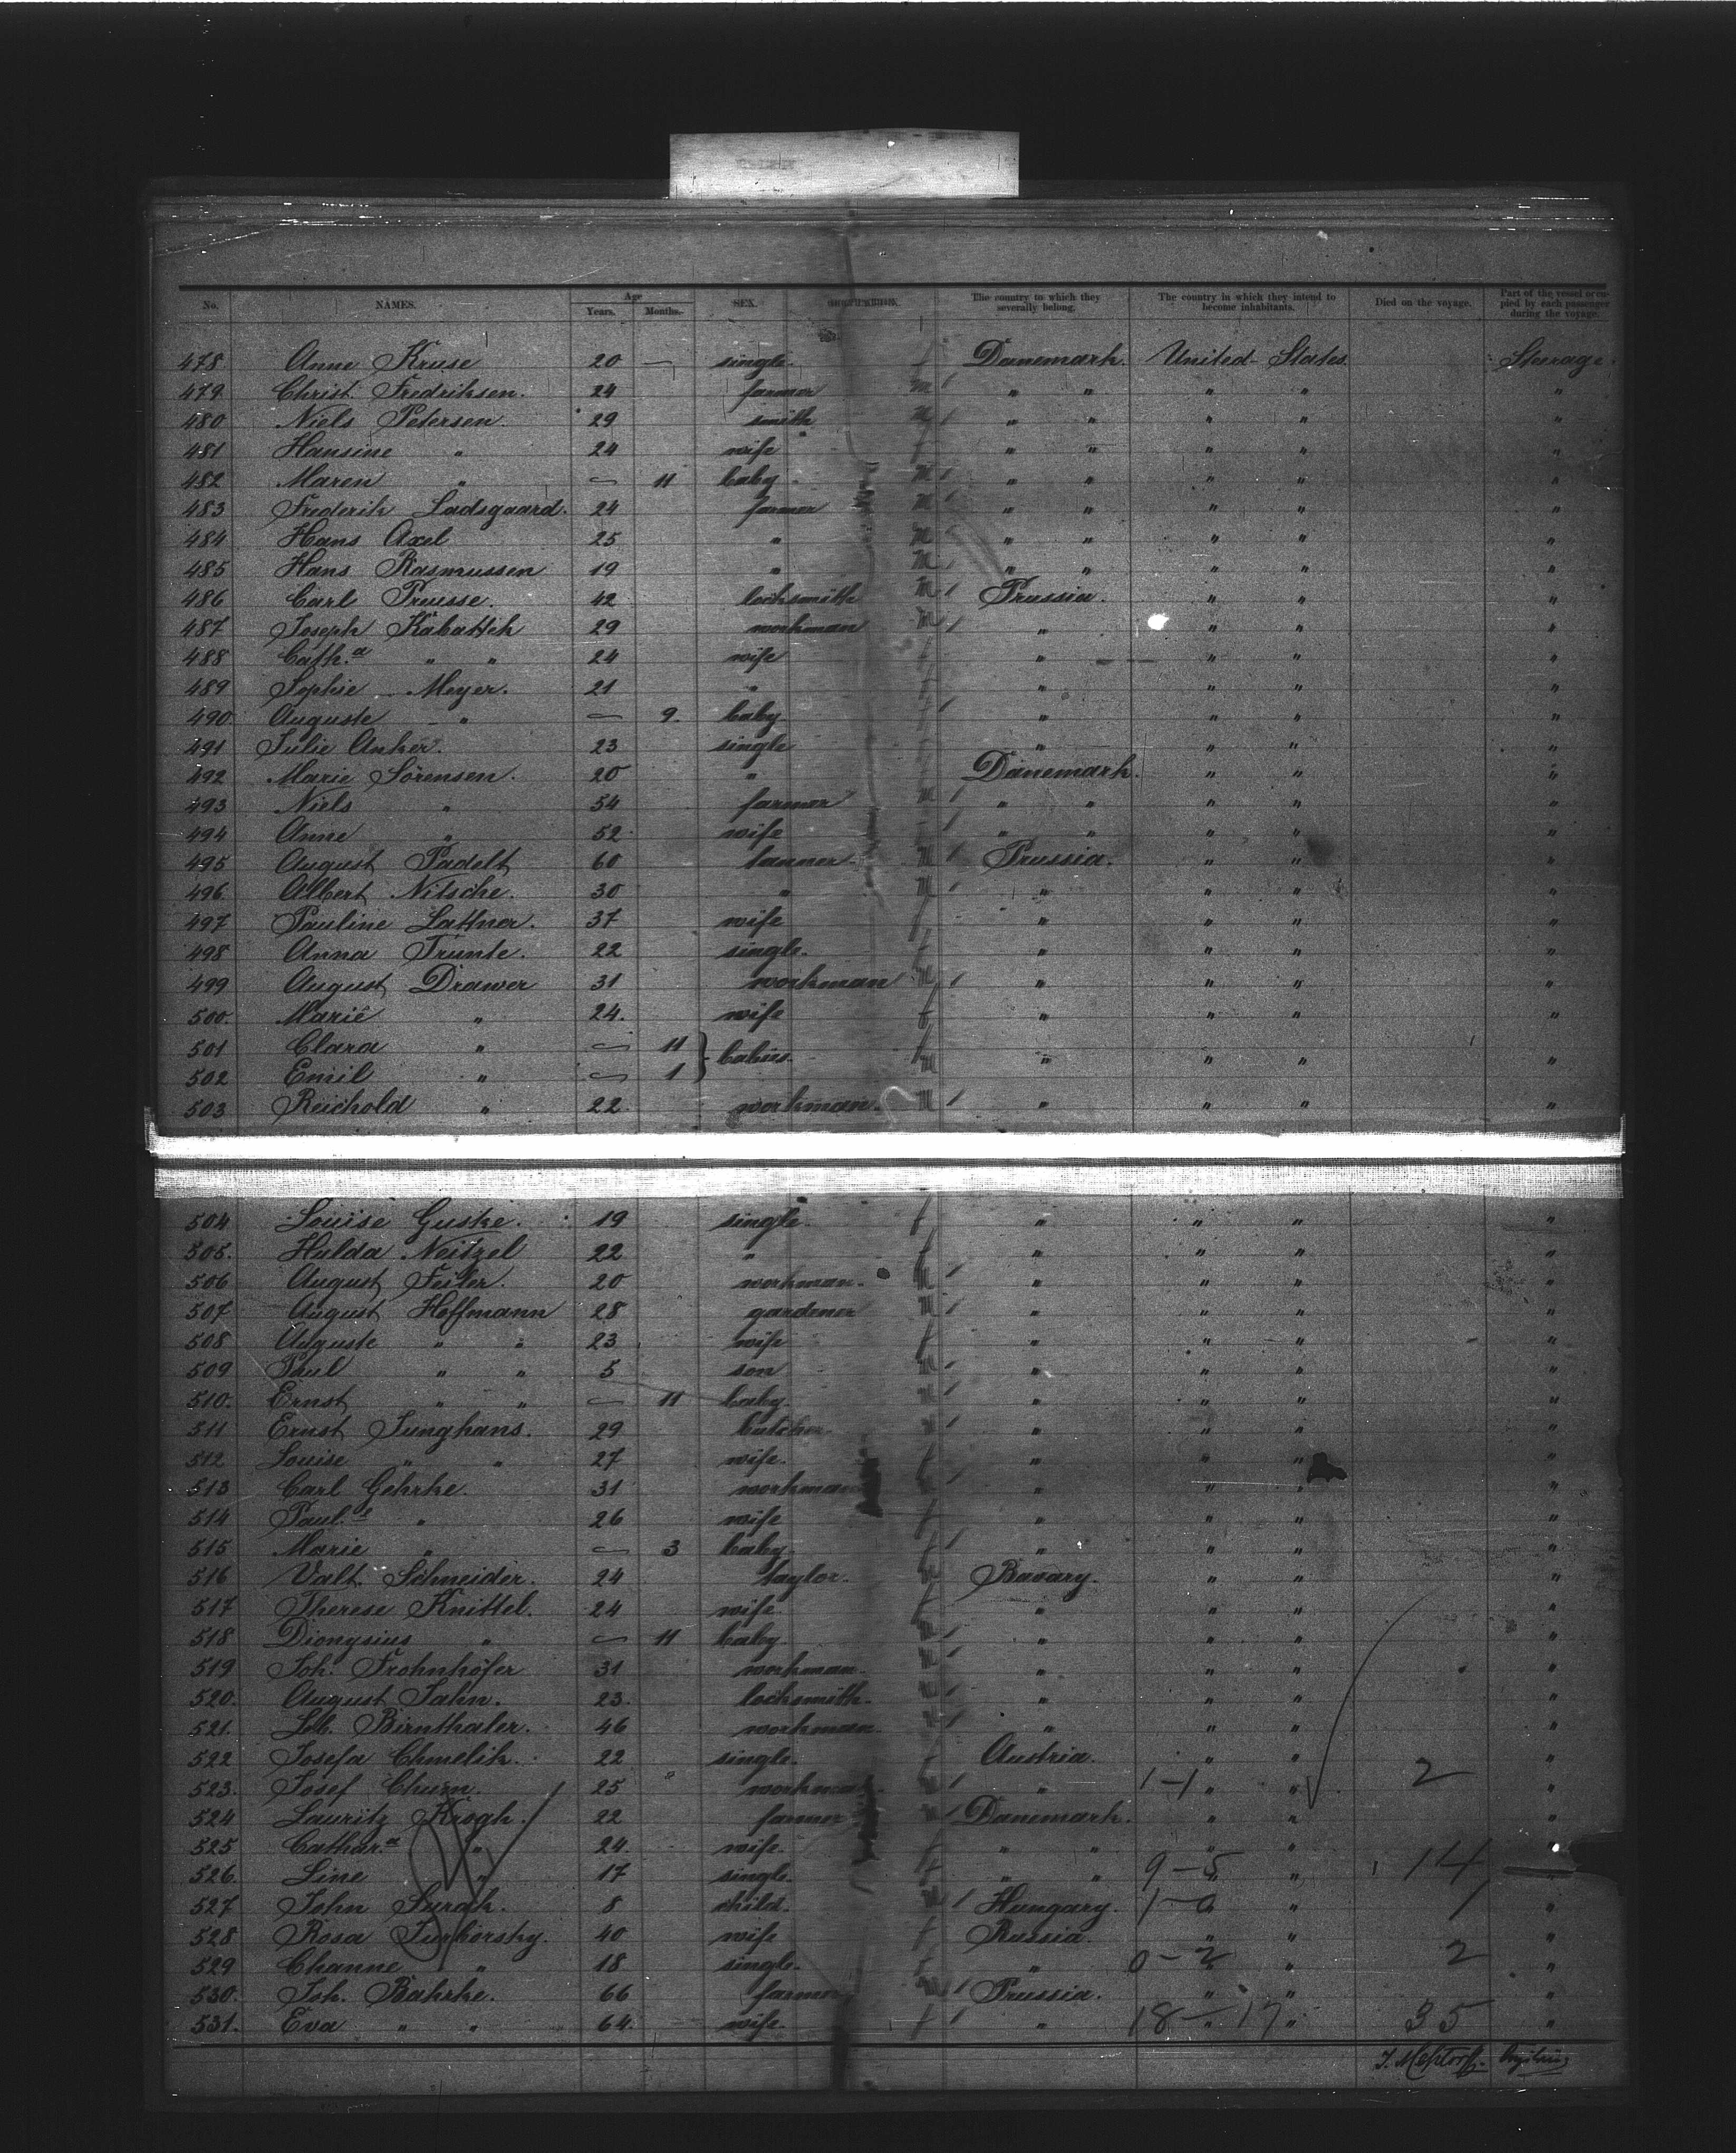 No. NAMES. Age Years. Months. SEX. OCCUPATION. The country to which they severally belong. The country in which they intend to become inhabitants. Died on the voyage. Part of the vessel occupied by each passenger during the voyage.
478. Anne Kruse 20 — single f Danemark. United States. Steerage.
479. Christ. Fredriksen. 24 farmer M " " " " "
480 Niels Petersen. 29 smith M " " " " "
481 Hansine " 24 wife f " " " " "
482 Maren " — 11 baby M " " " " "
483 Frederik Ladsgaard. 24 farmer M " " " " "
484 Hans Axel 25 " M " " " " "
485 Hans Rasmussen 19 " M " " " " "
486 Carl Preusse. 42 locksmith M Prussia. " " "
487 Joseph Kabattek 29 workman M " " " "
488 Cath.a " " 24 wife f " " " "
489 Sophie Meyer. 21 " f " " " "
490 Auguste " — 9. baby " " " "
491 Julie Anker. 23 single " " " "
492 Marie Sörensen. 20 " Danemark. " " "
493 Niels " 54 farmer M " " " " "
494 Anne " 52 wife " " " " "
495 August Padelt 60 tanner M Prussia. " " "
496. Albert Nitsche. 30 " M " " " "
497 Pauline Lattner. 37 wife f " " " "
498 Anna Trunte. 22 single. f " " " "
499 August Drawer 31 workman M " " " "
500. Marie " 24. wife f " " " "
501 Clara " — 11 } babies. f " " " "
502 Emil " — 1 M
503 Reichold " 22 workman. M " " " "
504 Louise Guske. 19 single. f " " " "
505. Hulda Neitzel 22 " f " " " "
506 August Feiler. 20 workman. M " " " "
507 August Hoffmann 28 gardener M " " " "
508 Auguste " " 23 wife f " " " "
509 Paul " " 5 son M " " " "
510. Ernst " " — 11 baby. M " " " "
511 Ernst Junghans. 29 butcher. M " " " "
512 Louise " " 27 wife. f " " " "
513 Carl Gehrke. 31 workman " " " "
514 Paul.e " 26 wife f " " " "
515 Marie " — 3 baby. f " " " "
516 Valt. Schneider. 24 taylor. M Bavary. " " "
517 Therese Knittel. 24 wife. f " " " "
518 Dionysius " — 11 baby. M " " " "
519 Joh. Frohnhöfer 31 workman. M " " " "
520. August Jahn. 23. locksmith. M " " " "
521. Birnthaler. 46 workman. M " " " "
522 Josefa Chmelik. 22 single. f Austria. " " "
523. Josef 25 workman M " 1-1 " " 2 "
524 Lauritz Krogh. 22 farmer M Danemark. " " "
525 Cathar.a " 24. wife. f " " " " "
526. Line " 17 single. f " " 9-5 " " 14 "
527 John 8 child. M Hungary. 1-0 " 1 "
528 Rosa 40 wife f Russia. " " "
529 Channe " 18 single. f " 0-2 " " 2 "
530. Joh. Bahrke. 66 farmer M Prussia. " " "
531. Eva " " 64. wife. f " 18- " 17 " 35 "